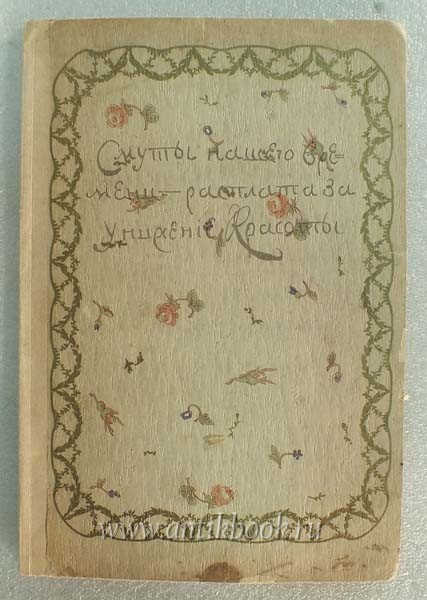 Смуты нашего вре=
мени — расплата за
Унижение Красоты
www.antikbook.ru